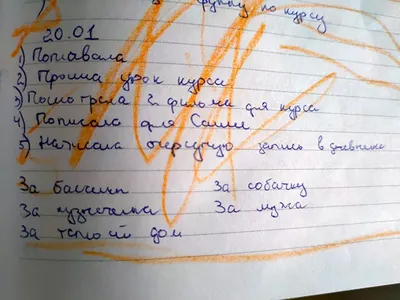 функу по курсу
20.01
1) Поплавала
2) Прошла урок курса
3) Посмотрела 2 фильма для курса
4) Пописала для Саши
5) Написала очередную запись в дневнике
За бассейн За собачку
За кузнечика За мужа
За теплый дом